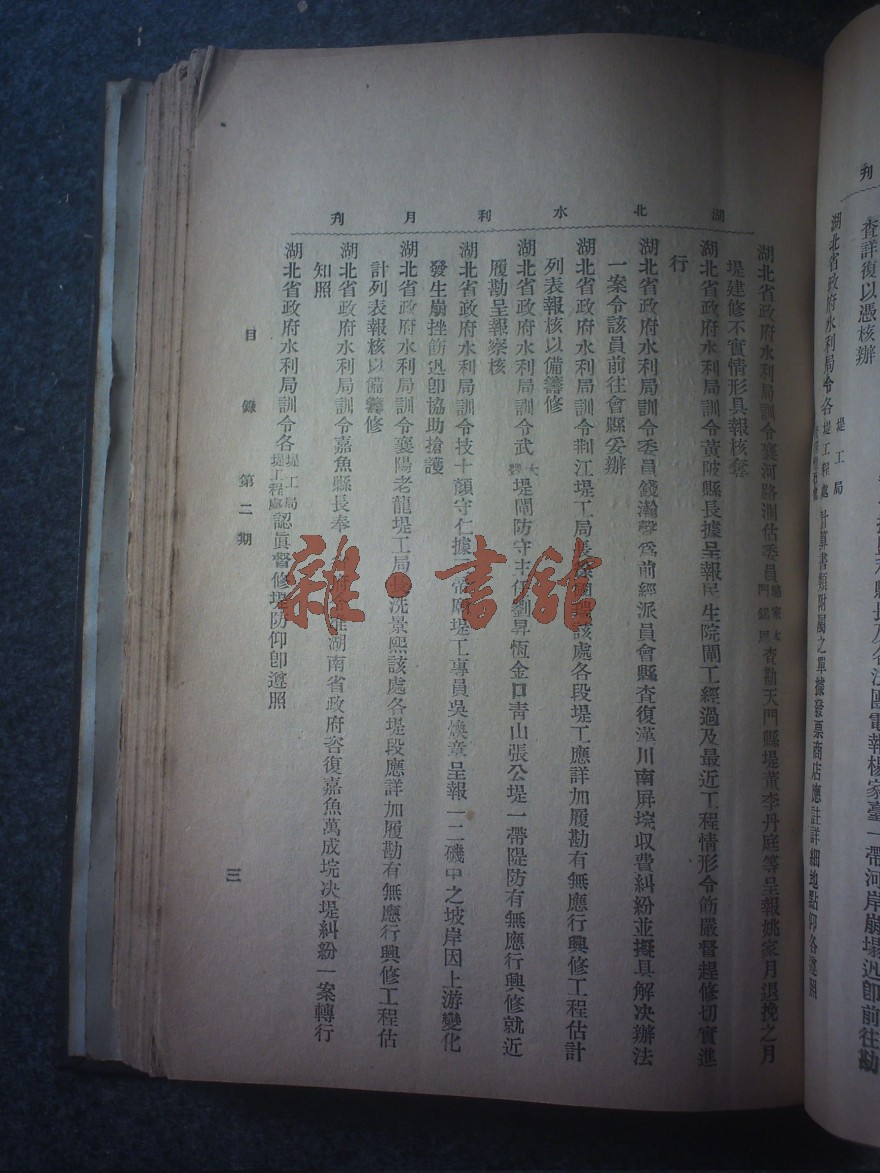 刋
查詳復以憑核辦
湖北省政府水利局令各堤工局堤工程處計算書類附屬之單據發票商店應註詳細地點仰各遵照
湖北水利月刋
湖北省政府水利局訓令襄河路測估委員查勘天門縣堤董李丹庭等呈報姚家月退挽之月
堤建修不實情形具報核奪
湖北省政府水利局訓令黃陂縣長據呈報民生院閘工經過及最近工程情形令飭嚴督趕修切實進
行
湖北省政府水利局訓令委員錢瀚聲爲前經派員會縣查復漢川南屏垸収費糾紛並擬具解决辦法
一案令該員前往會縣妥辦
湖北省政府水利局訓令荆江堤工局長該處各段堤工應詳加履勘有無應行興修工程估計
列表報核以備籌修
湖北省政府水利局訓令武堤閘防守主任劉昇恆金口青山張公堤一帶隄防有無應行興修就近
履勘呈報察核
湖北省政府水利局訓令技士顏守仁據堤工專員吳煥章呈報一二磯中之坡岸因上游變化
發生崩挫飭迅卽協助搶護
湖北省政府水利局訓令襄陽老龍堤工局長冼景熙該處各堤段應詳加履勘有無應行興修工程估
計列表報核以備籌修
湖北省政府水利局訓令嘉魚縣長奉湖南省政府咨復嘉魚萬成垸决堤糾紛一案轉行
知照
湖北省政府水利局訓令各堤工局堤工程處認眞督修堤防仰卽遵照
目錄 第二期 三
雜·書舘